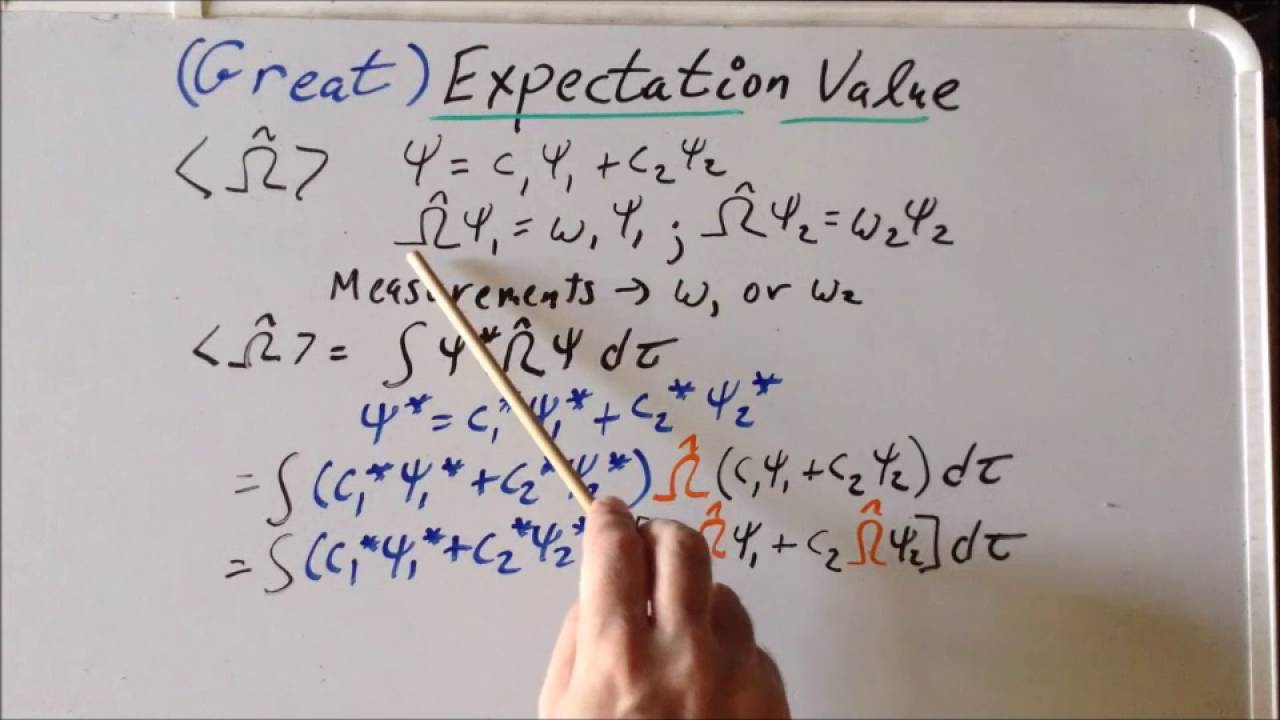 (Great) Expectation Value
<Ω̂> Ψ = c₁Ψ₁ + c₂Ψ₂
Ω̂Ψ₁ = ω₁Ψ₁ ; Ω̂Ψ₂ = ω₂Ψ₂
Measurements → ω₁ or ω₂
<Ω̂> = ∫ Ψ* Ω̂ Ψ dτ
Ψ* = c₁*Ψ₁* + c₂*Ψ₂*
= ∫ (c₁*Ψ₁* + c₂*Ψ₂*) Ω̂ (c₁Ψ₁ + c₂Ψ₂) dτ
= ∫ (c₁*Ψ₁* + c₂*Ψ₂* Ω̂Ψ₁ + c₂ Ω̂Ψ₂] dτ